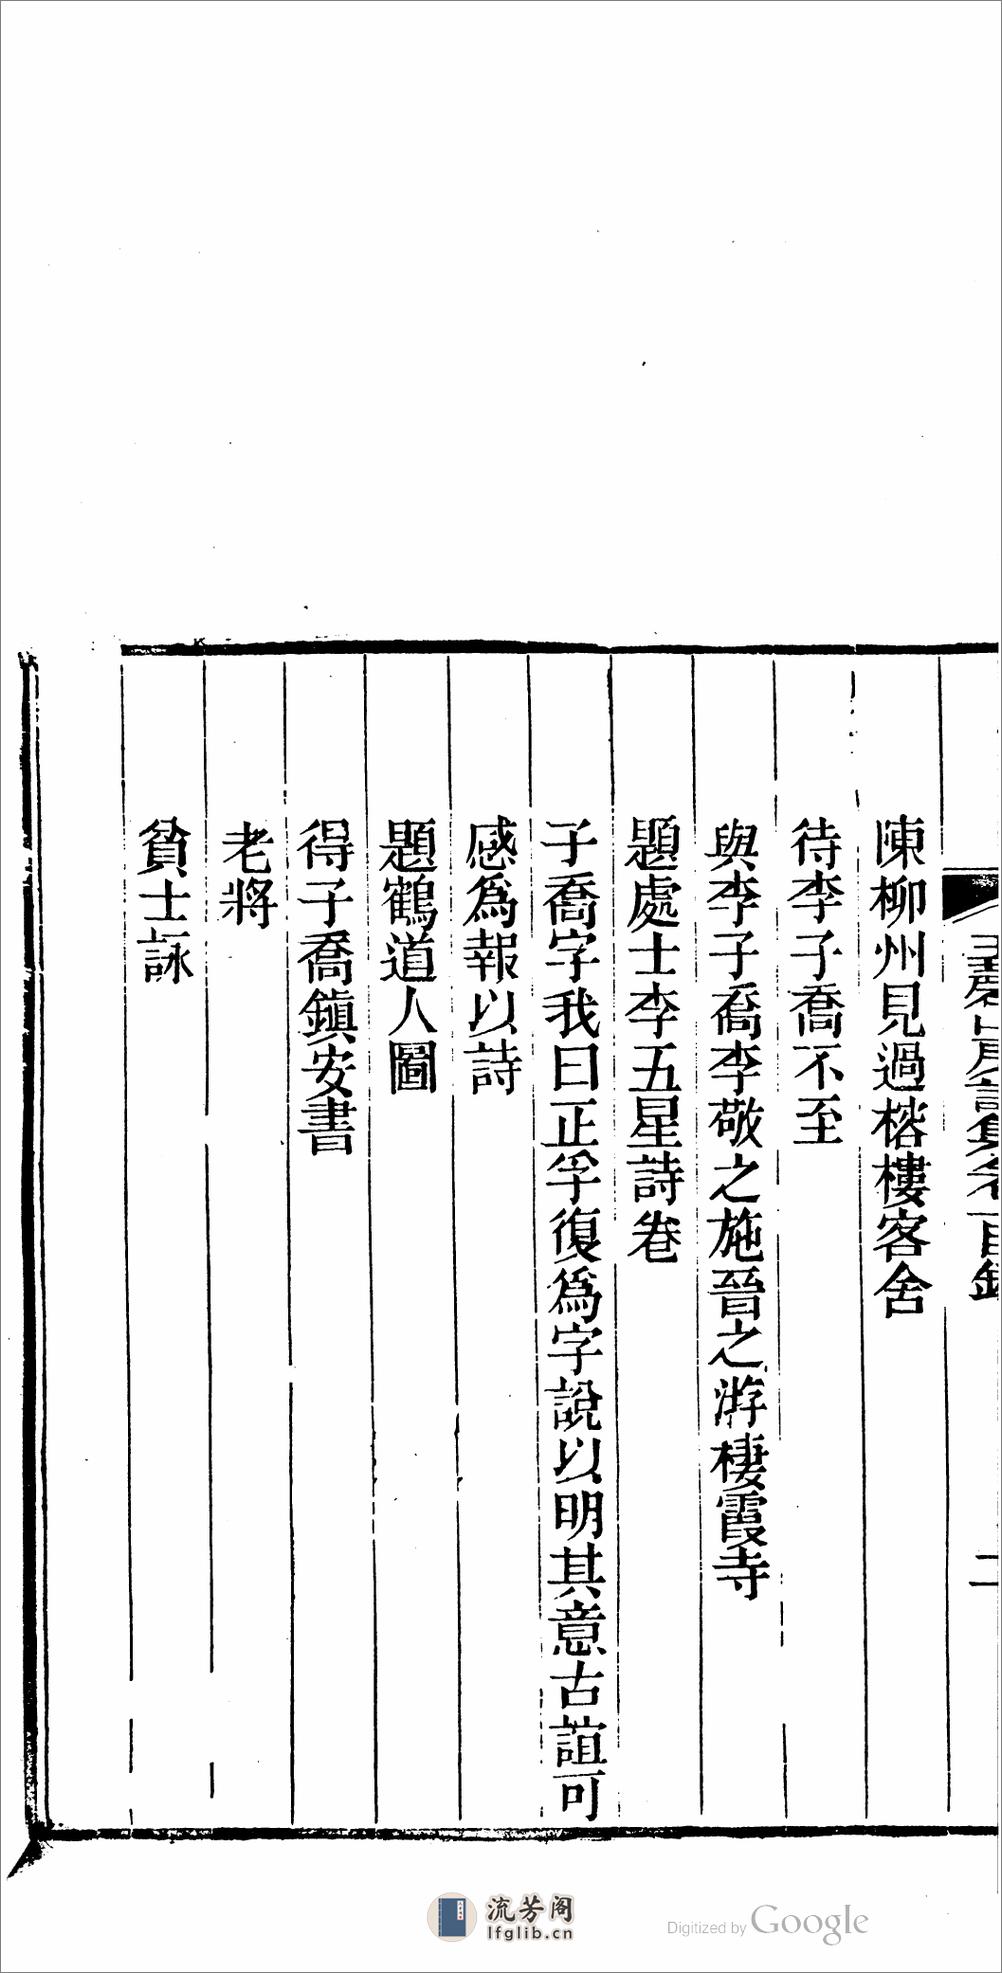 玉磬山房詩集卷一目錄 二
陳柳州見過榕樓客舍
待李子喬不至
與李子喬李敬之施晉之游棲霞寺
題處士李五星詩卷
子喬字我曰正孚復爲字說以明其意古誼可
感爲報以詩
題鶴道人圖
得子喬鎮安書
老將
貧士詠
流芳阁
lfglib.cn
Digitized by Google